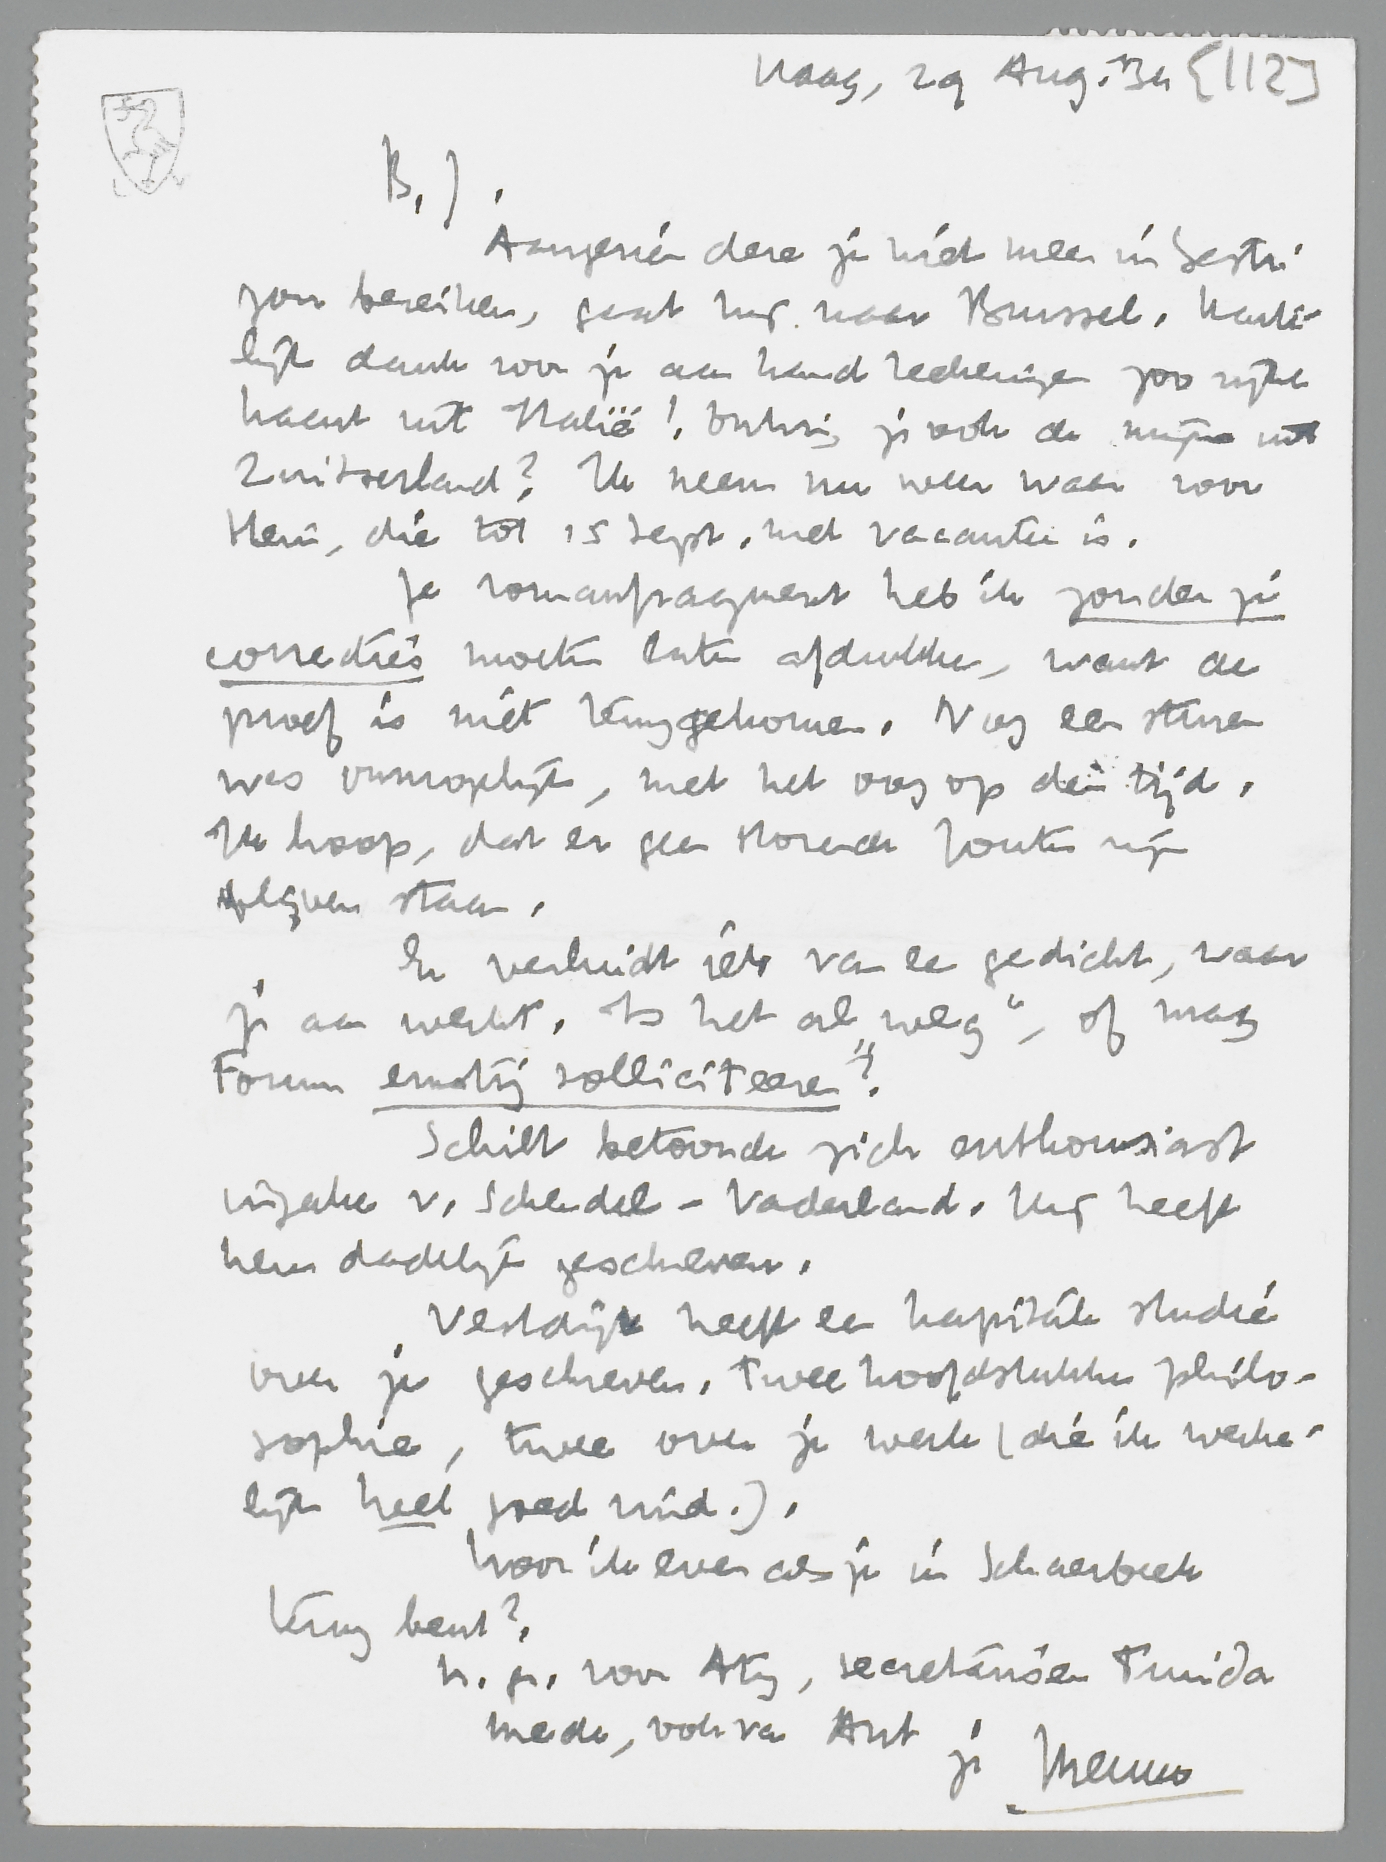 Haag, 29 Aug. '34 [112]
B. J.,
Aangezien deze je niet meer in Sestri
zou bereiken, gaat hij naar Brussel. Harte-
lijk dank voor je aan handteekeningen zoo rijke
kaart uit Italië! Ontving je ook de mijne uit
Zwitserland? Ik neem nu weer waar voor
Hein, die tot 15 Sept. met vacantie is.
Je romanfragment heb ik zonder je
correcties moeten laten afdrukken, want de
proef is niet teruggekomen. Nog een sturen
was onmogelijk, met het oog op den tijd.
Ik hoop, dat er geen storende fouten zijn
blijven staan.
Er verluidt iets van een gedicht, waar
je aan werkt. Is het al „weg”, of mag
Forum ernstig solliciteeren?
Schilt betoonde zich enthousiast
inzake v. Schendel - Vaderland. Hij heeft
hem dadelijk geschreven.
Vestdijk heeft een kapitale studie
over je geschreven. Twee hoofdstukken philo-
sophie, twee over je werk (die ik werke-
lijk heel goed vind.).
Hoor ik even als je in Schaerbeek
terug bent?
h. gr. voor Atty, secretarissen Truida
mede, ook van Ant
je Menno